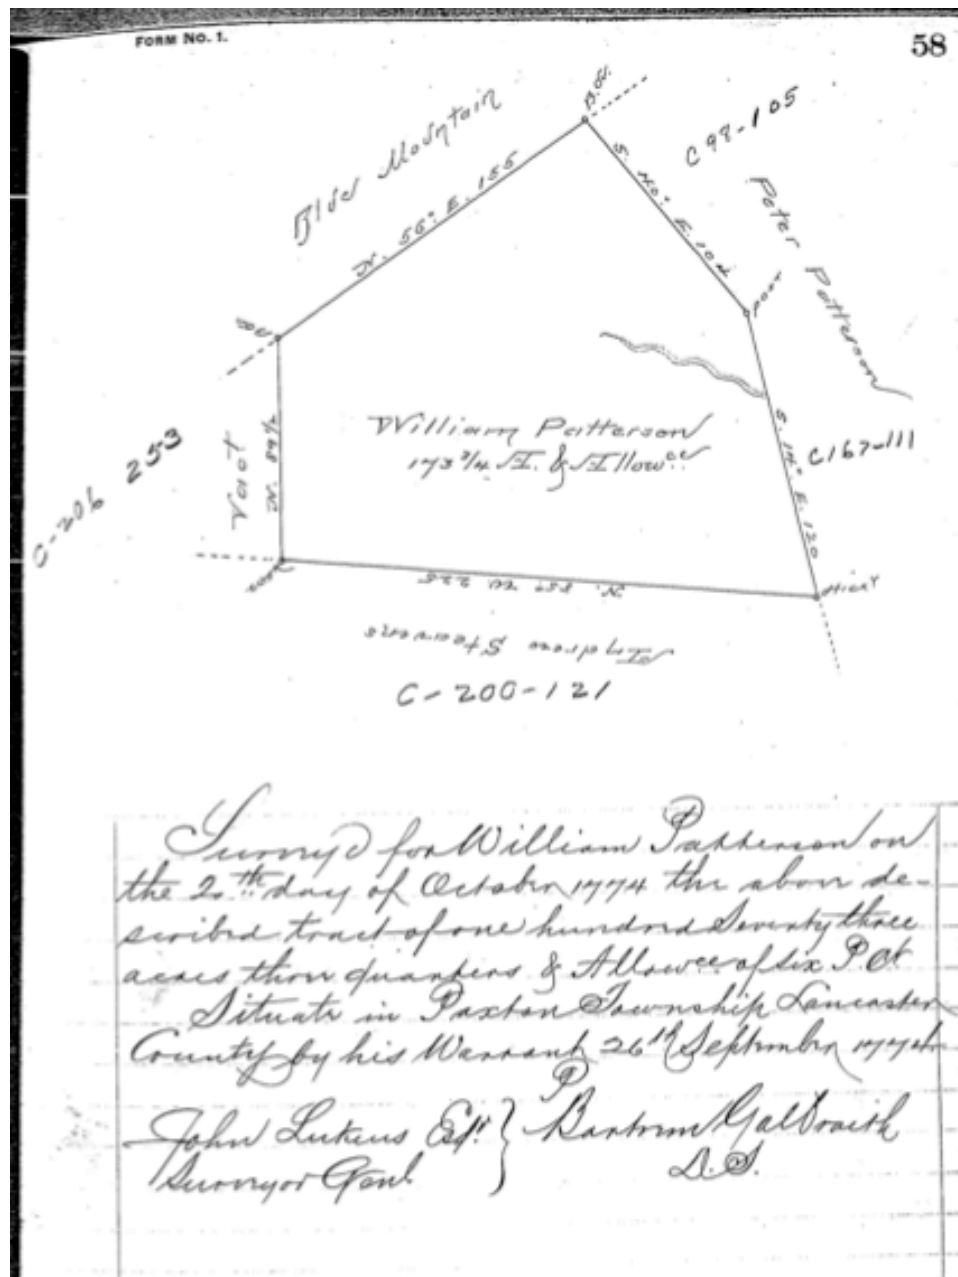 FORM No. 1.
58
B.O.
Blue Mountain
N. 55° E. 155
C 98-105
S. 40° E. 104
Peter Patterson
post
Vacant
N. 89 1/2
C-206 253
William Patterson
173 3/4 A. & Allowce
S. 14° E. 120
C167-111
HickY
post
N. 85° W. 225
Andrew Stearens
C-200-121
Survey'd for William Patterson on
the 20th day of October 1774 the above de-
scribed tract of one hundred Seventy three
acres three quarters & Allowce of six P Ct
Situate in Paxton Township Lancaster
County by his Warrant 26th September 1774
P
John Lukens Esqr } Bartrem Galbraith
Surveyor Genl D. S.